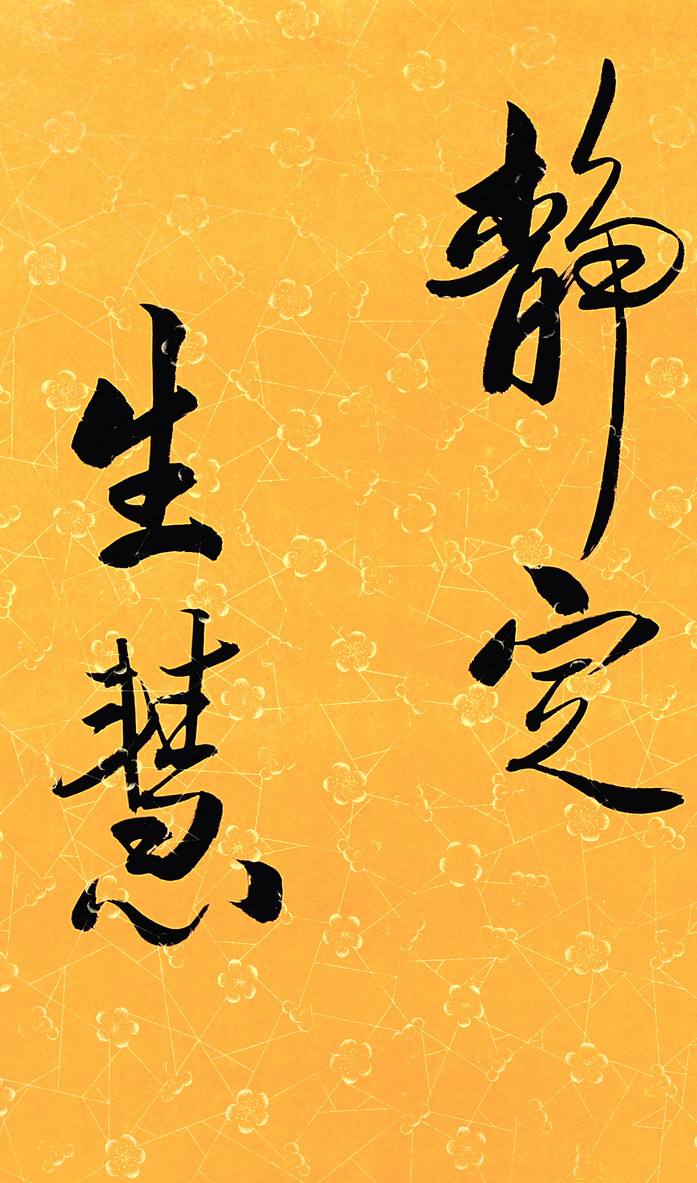 静定
生慧